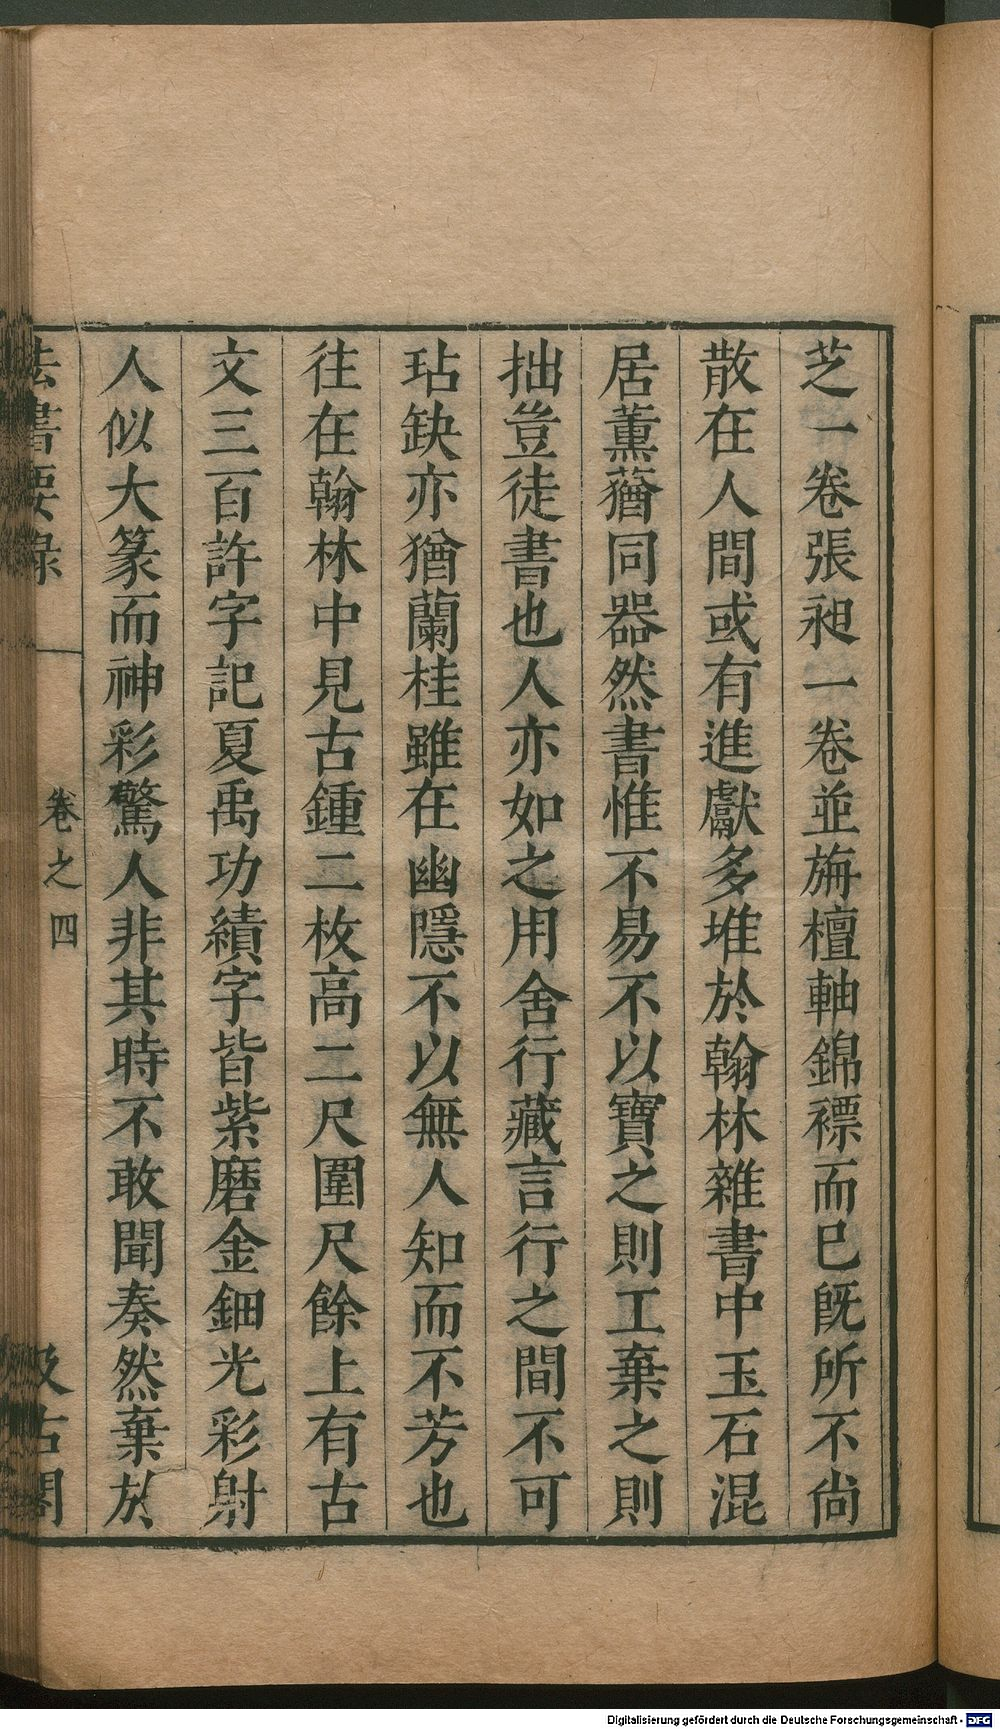 芝一卷張昶一卷並旃檀軸錦褾而已旣所不尙
散在人間或有進獻多堆於翰林雜書中玉石混
居薰蕕同器然書惟不易不以寶之則工棄之則
拙豈徒書也人亦如之用舍行藏言行之間不可
玷缺亦猶蘭桂雖在幽隱不以無人知而不芳也
往在翰林中見古鍾二枚高二尺圍尺餘上有古
文三百許字記夏禹功績字皆紫磨金鈿光彩射
人似大篆而神彩驚人非其時不敢聞奏然棄於
法書要錄
卷之四
汲古閣
Digitalisierung gefördert durch die Deutsche Forschungsgemeinschaft - DFG